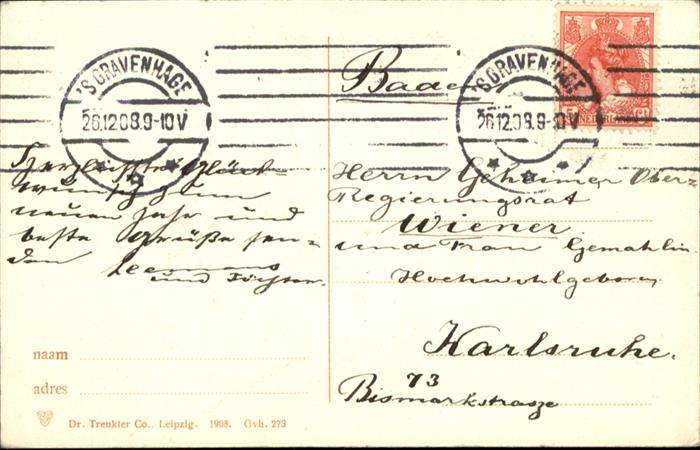 'S GRAVENHAGE
26.12.08.9-10V
'S GRAVENHAGE
26.12.08.9-10V
5 ct
NEDERLAND
Baden
Herzlichste Glück-
wünsch zum
neuen Jahr und
beste Grüße sen-
den
und Töchter.
Herrn Geheimer Ober-
Regierungsrat
Wiener
und Frau Gemahlin
Hochwohlgeboren
Karlsruhe.
73
Bismarkstrasze
naam
adres
Dr. Trenkler Co., Leipzig. 1908. Gvh. 273